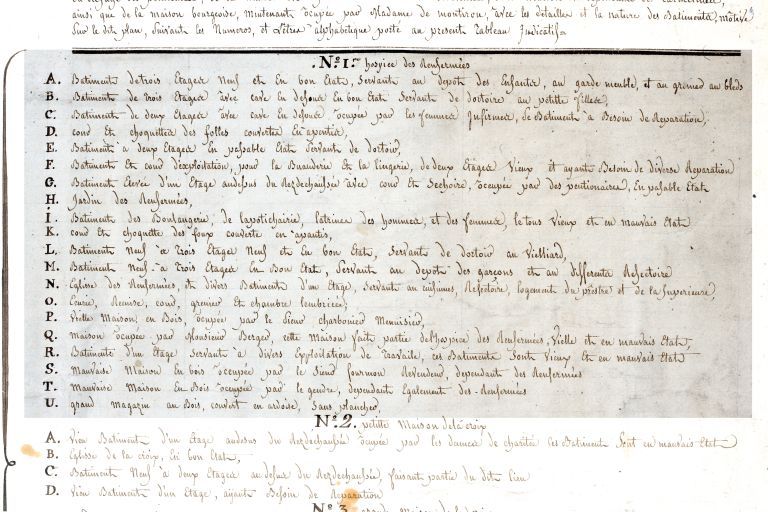 ainsi que de la maison bourgeoise, mintenant ocupée par Madame de montiron, avec les détailles et la nature des Batiments, motivé
Sur le dit plan, Suivant les Numeros, et Létres alphabetique porté au present tableau Indicatif.
N.º 1.er hospice des Renfermées
A. Batiment de trois Etages Neuf et En bon Etat, Servant au depot des Enfants, au garde meuble, et au grenier au bleds
B. Batiment de trois Etages avec cave En desous En bon Etat Servant de dortoire au petitte filles,
C. Batiment de deux Etages avec cave En desous, ocupée par les femmes Infirmes, Se Batiment a Besoin de Reparation,
D. cour Et choquettes des folles couverttes En apentis,
E. Batiment a deux Etages En pasable Etat Servant de dortoir,
F. Batiment Et cour d'exploitation, pour la Buanderie Et la lingerie, de deux Etages Vieux et ayant Besoin de diverse Reparation
G. Batiment Elevée d'un Etage audesus du Rezdechaussée avec cour Et Sechoire, ocupée par des pentionaires, En pasable Etat
H. Jardin des Renfermées,
I. Batiment des Boulangerie, de lapotichairie, latrines des hommes, et des femmes, le tous Vieux et en mauvais Etat
K. cour et choquette des foux couverte en apantis,
L. Batiment Neuf a trois Etages Neuf et En bon Etat, Servant de dortoir au Vielliard,
M. Batiment Neuf a trois Etages En Bon Etat, Servant au depot des garçons et au differents Refectoire
N. Eglise des Renfermées, et divers Batiments d'un Etage, Servant au cuisines, Refectoire, logement du prestre et de la Superieure,
O. Ecurie, Remise, cour, grenier Et chambre lembrices,
P. Vielle Maison en Bois, ocupée par le Sieur charbonier Mennisier
Q. Maison ocupée par Monsieur Berger, cette Maison fait partie de l'hospice des Renfermées, Vielle et en mauvais Etat,
R. Batiments d'un Etage Servant a divers Exploitation de travaile, ces Batiments Sonte Vieux Et en mauvais Etat
S. Mauvaise Maison En bois ocupée par le Sieur fourmon Revendeur, dependant des Renfermées
T. Mauvaise Maison En Bois ocupée par le gendre, dependant Egalement des Renfermées
U. grand magazin au Bois, couvert en ardoise, Sans plancher,
N.º 2. petitte Maison de la croix
A. Vieu Batiment d'un Etage audesus du Rezdechaussée ocupée par les dames de charitée Ces Batiment Sont en mauvais Etat
B. Eglise de la croix, En bon Etat,
C. Batiment Neuf a deux Etages audesus du Rezdechaussée, faisant partie du dit lieu
D. Vieu Batiment d'un Etage, aijant Besoin de Reparation
N.º 3.